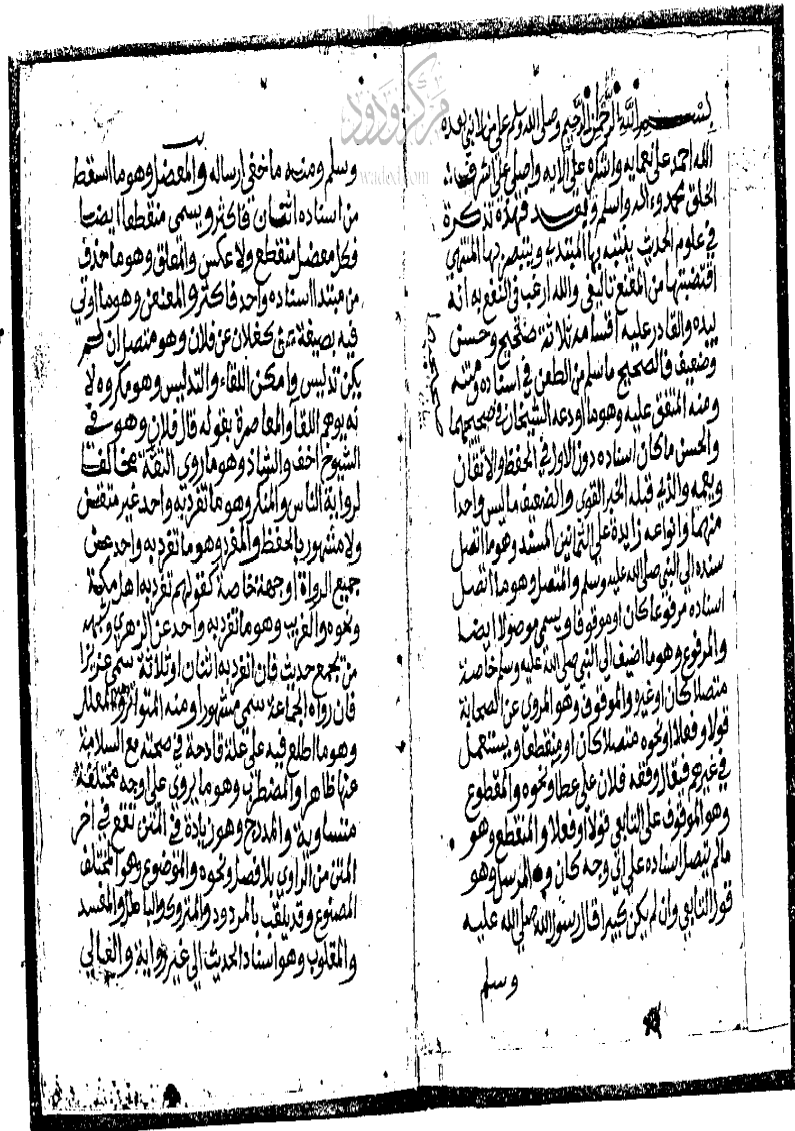 بسم الله الرحمن الرحيم وصلى الله وسلم على من لا نبي بعده
الله احمد على نعمايه واشكره على آلايه واصلي على اشرف
الخلق محمد وءاله واسلم وبعد فهذه تذكرة
في علوم الحديث يتنبه بها المبتدي ويتبصر بها المنتهي
اقتضبتها من المقنع تاليفي والله ارغب في النفع به انه
بيده والقادر عليه اقسامه ثلاثة صحيح وحسن
وضعيف فالصحيح ما سلم من الطعن في اسناده ومتنه
ومنه المتفق عليه وهو ما اودعه الشيخان في صحيحهما
والحسن ما كان اسناده دون الاول في الحفظ والاتقان
ويعمه والذي قبله الخبر القوي والضعيف ما ليس واحدا
منهما وانواعه زايدة على الثمانين المسند وهو ما اتصل
سنده الى النبي صلى الله عليه وسلم والمتصل وهو ما اتصل
اسناده مرفوعا كان او موقوفا ويسمى موصولا ايضا
والمرفوع وهو ما اضيف الى النبي صلى الله عليه وسلم خاصة
متصلا كان او غيره والموقوف وهو المروي عن الصحابة
قولا وفعلا او نحوه متصلا كان او منقطعا ويستعمل
في غيرهم فيقال وقفه فلان على عطا ونحوه والمقطوع
وهو الموقوف على التابعي قولا او فعلا والمنقطع وهو
ما لم يتصل اسناده على اي وجه كان والمرسل وهو
قول التابعي وان لم يكن كبيرا قال رسول الله صلى الله عليه
وسلم
وسلم ومنه ما خفي ارساله والمعضل وهو ما اسقط
من اسناده اثنان فاكثر ويسمى منقطعا ايضا
فكل معضل منقطع ولا عكس والمعلق وهو ما حذف
من مبتدا اسناده واحد فاكثر والمعنعن وهو ما اوتي
فيه بصيغة عن كفلان عن فلان وهو متصل ان لم
يكن تدليس وامكن اللقاء والتدليس وهو مكروه لا
نه يوهم اللقا والمعاصرة بقوله قال فلان وهو في
الشيوخ اخف والشاذ وهو ما روي الثقة مخالفا
لرواية الناس والمنكر وهو ما تفرد به واحد غير متقن
ولا مشهور بالحفظ والفرد وهو ما تفرد به واحد عن
جميع الرواة او جهة خاصة كقولهم تفرد به اهل مكة
ونحوه والغريب وهو ما تفرد به واحد عن الزهري وشبهه
من يجمع حديثه فان انفرد به اثنان او ثلاثة سمي عزيزا
فان رواه الجماعة سمي مشهورا ومنه المتواتر والمعلل
وهو ما اطلع فيه على علة قادحة في صحته مع السلامة
عنها ظاهرا والمضطرب وهو ما يروى على اوجه مختلفة
متساوية والمدرج وهو زيادة في المتن تقع في اخر
المتن من الراوي بلا فصل ونحوه والموضوع وهو المختلق
المصنوع وقد يلقب بالمردود والمتروك والباطل والمفسد
والمقلوب وهو اسناد الحديث الى غير رواية والعالي
مركز ودود